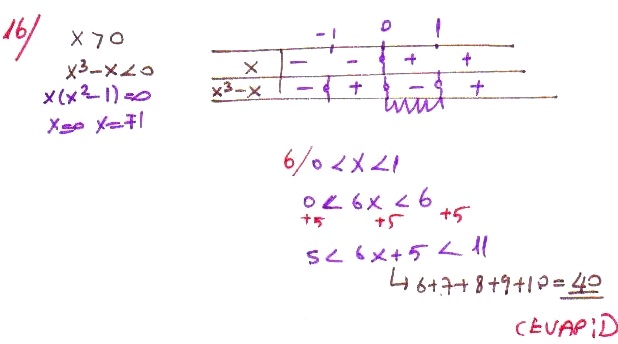 16/
x > 0
x³-x<0
x(x²-1)=0
x=0 x=∓1
-1 0 1
x - - + +
x³-x - + - +
6/ 0 < x < 1
0 < 6x < 6
+5 +5 +5
5 < 6x+5 < 11
↳ 6+7+8+9+10=40
CEVAP:D